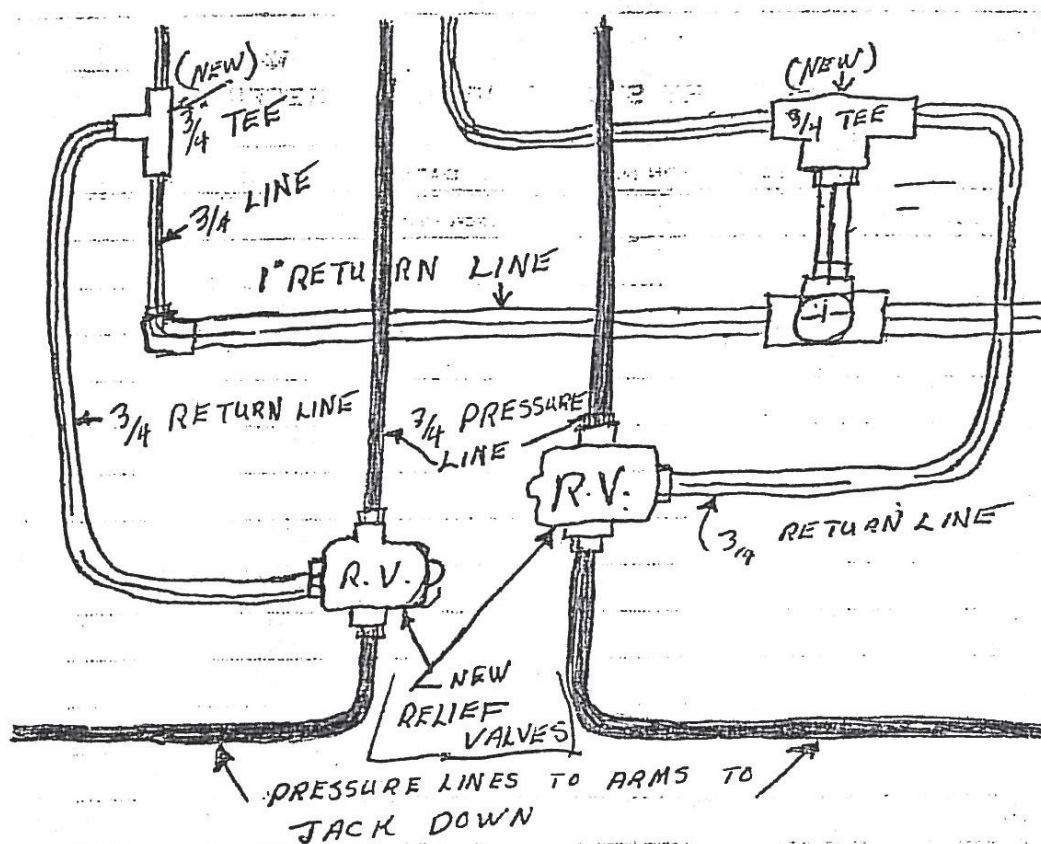 (NEW)
3/4" TEE
(NEW)
3/4 TEE
3/4 LINE
1" RETURN LINE
3/4 RETURN LINE
3/4 PRESSURE
LINE
R.V.
R.V.
3/4 RETURN LINE
NEW
RELIEF
VALVES
PRESSURE LINES TO ARMS TO
JACK DOWN